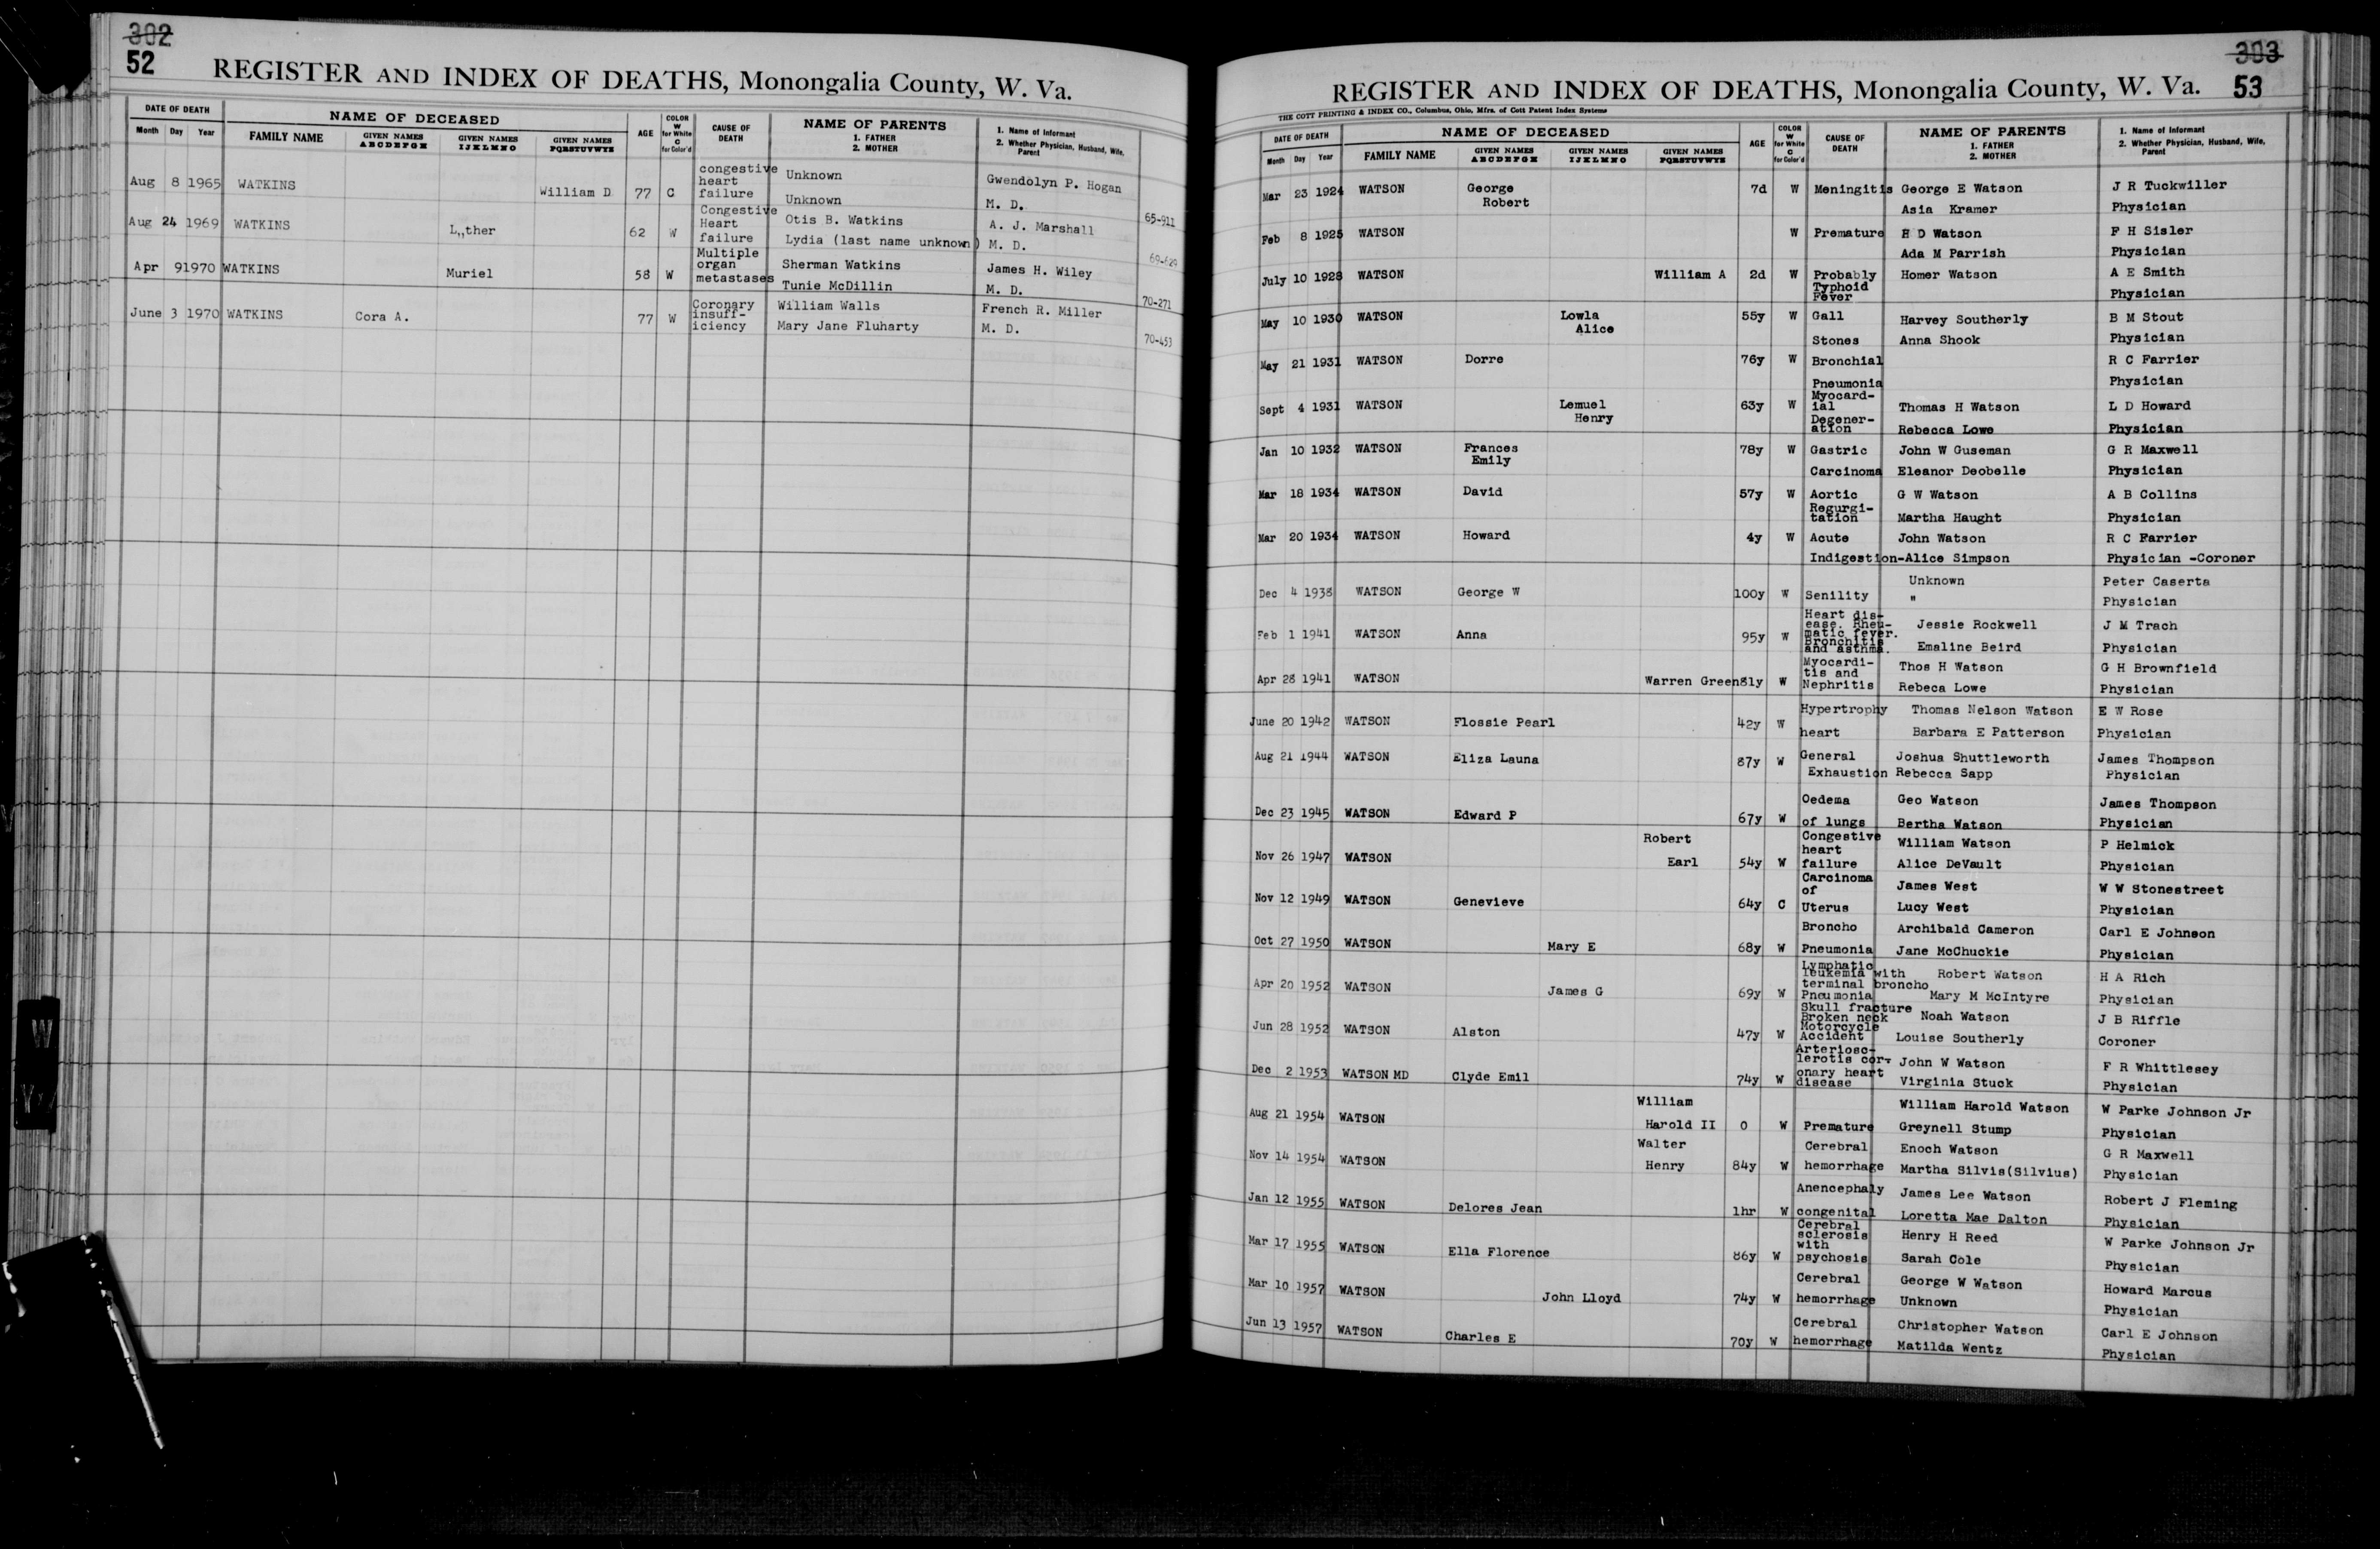 302
52
REGISTER AND INDEX OF DEATHS, Monongalia County, W. Va.
DATE OF DEATH NAME OF DECEASED AGE COLOR W for White C for Color'd CAUSE OF DEATH NAME OF PARENTS 1. FATHER 2. MOTHER 1. Name of Informant 2. Whether Physician, Husband, Wife, Parent
Month Day Year FAMILY NAME GIVEN NAMES ABCDEFGH GIVEN NAMES IJKLMNO GIVEN NAMES PQRSTUVWYZ
Aug 8 1965 WATKINS William D 77 C congestive heart failure Unknown Gwendolyn P. Hogan
Unknown M. D. 65-911
Aug 24 1969 WATKINS L,,ther 62 W Congestive Heart failure Otis B. Watkins A. J. Marshall
Lydia (last name unknown) M. D. 69-629
Apr 91970 WATKINS Muriel 58 W Multiple organ metastases Sherman Watkins James H. Wiley
Tunie McDillin M. D. 70-271
June 3 1970 WATKINS Cora A. 77 W Coronary insuff- iciency William Walls French R. Miller
Mary Jane Fluharty M. D. 70-453
W
303
REGISTER AND INDEX OF DEATHS, Monongalia County, W. Va. 53
THE COTT PRINTING & INDEX CO., Columbus, Ohio, Mfrs. of Cott Patent Index Systems
DATE OF DEATH NAME OF DECEASED AGE COLOR W for White C for Color'd CAUSE OF DEATH NAME OF PARENTS 1. FATHER 2. MOTHER 1. Name of Informant 2. Whether Physician, Husband, Wife, Parent
Month Day Year FAMILY NAME GIVEN NAMES ABCDEFGH GIVEN NAMES IJKLMNO GIVEN NAMES PQRSTUVWYZ
Mar 23 1924 WATSON George Robert 7d W Meningitis George E Watson J R Tuckwiller
Asia Kramer Physician
Feb 8 1925 WATSON W Premature H D Watson F H Sisler
Ada M Parrish Physician
July 10 1928 WATSON William A 2d W Probably Typhoid Fever Homer Watson A E Smith
Physician
May 10 1930 WATSON Lowla Alice 55y W Gall Harvey Southerly B M Stout
Stones Anna Shook Physician
May 21 1931 WATSON Dorre 76y W Bronchial R C Farrier
Pneumonia Physician
Sept 4 1931 WATSON Lemuel Henry 63y W Myocard- ial Degener- ation Thomas H Watson L D Howard
Rebecca Lowe Physician
Jan 10 1932 WATSON Frances Emily 78y W Gastric John W Guseman G R Maxwell
Carcinoma Eleanor Deobelle Physician
Mar 18 1934 WATSON David 57y W Aortic Regurgi- tation G W Watson A B Collins
Martha Haught Physician
Mar 20 1934 WATSON Howard 4y W Acute John Watson R C Farrier
Indigestion-Alice Simpson Physician -Coroner
Dec 4 1938 WATSON George W 100y W Senility Unknown Peter Caserta
" Physician
Feb 1 1941 WATSON Anna 95y W Heart dis- ease. Rheu- matic fever. Bronchitis and asthma. Jessie Rockwell J M Trach
Emaline Beird Physician
Apr 28 1941 WATSON Warren Green 81y W Myocardi- tis and Nephritis Thos H Watson G H Brownfield
Rebeca Lowe Physician
June 20 1942 WATSON Flossie Pearl 42y W Hypertrophy Thomas Nelson Watson E W Rose
heart Barbara E Patterson Physician
Aug 21 1944 WATSON Eliza Launa 87y W General Joshua Shuttleworth James Thompson
Exhaustion Rebecca Sapp Physician
Dec 23 1945 WATSON Edward P 67y W Oedema Geo Watson James Thompson
of lungs Bertha Watson Physician
Nov 26 1947 WATSON Robert Earl 54y W Congestive heart failure William Watson P Helmick
Alice DeVault Physician
Nov 12 1949 WATSON Genevieve 64y C Carcinoma of Uterus James West W W Stonestreet
Lucy West Physician
Oct 27 1950 WATSON Mary E 68y W Broncho Archibald Cameron Carl E Johnson
Pneumonia Jane McChuckie Physician
Apr 20 1952 WATSON James G 69y W Lymphatic leukemia with terminal broncho Pneumonia Robert Watson H A Rich
Mary M McIntyre Physician
Jun 28 1952 WATSON Alston 47y W Skull fracture Broken neck Motorcycle Accident Noah Watson J B Riffle
Louise Southerly Coroner
Dec 2 1953 WATSON MD Clyde Emil 74y W Arteriosc- lerotis cor- onary heart disease John W Watson F R Whittlesey
Virginia Stuck Physician
Aug 21 1954 WATSON William Harold II 0 W Premature William Harold Watson W Parke Johnson Jr
Greynell Stump Physician
Nov 14 1954 WATSON Walter Henry 84y W Cerebral hemorrhage Enoch Watson G R Maxwell
Martha Silvis(Silvius) Physician
Jan 12 1955 WATSON Delores Jean 1hr W Anencephaly congenital James Lee Watson Robert J Fleming
Loretta Mae Dalton Physician
Mar 17 1955 WATSON Ella Florence 86y W Cerebral sclerosis with psychosis Henry H Reed W Parke Johnson Jr
Sarah Cole Physician
Mar 10 1957 WATSON John Lloyd 74y W Cerebral hemorrhage George W Watson Howard Marcus
Unknown Physician
Jun 13 1957 WATSON Charles E 70y W Cerebral hemorrhage Christopher Watson Carl E Johnson
Matilda Wentz Physician